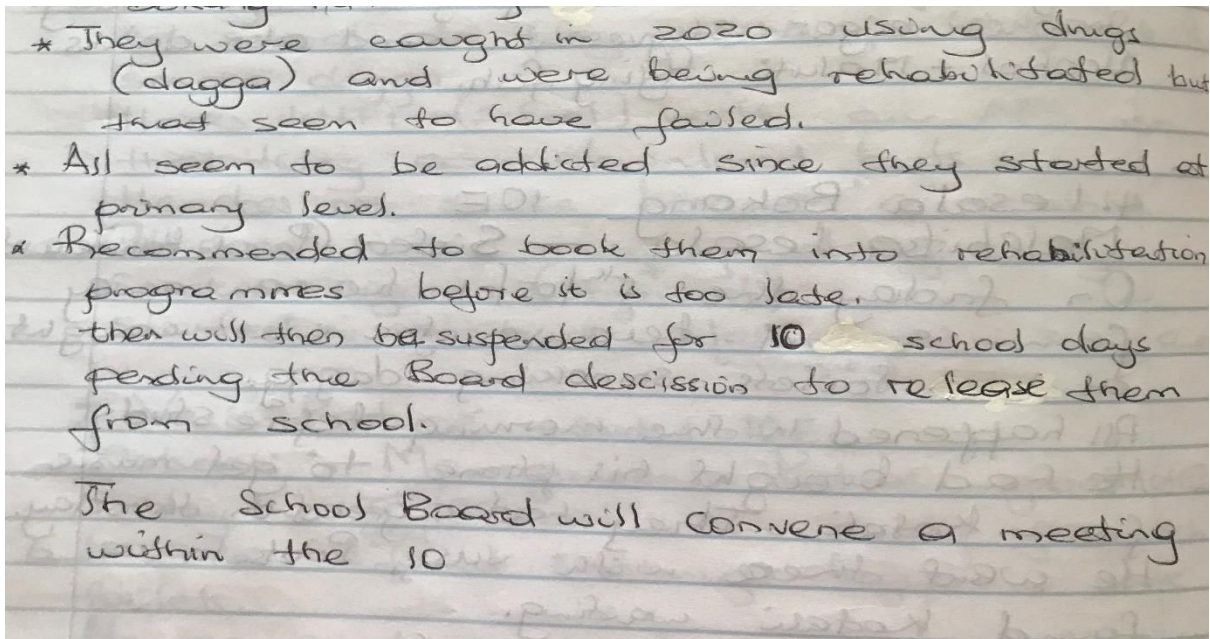 * They were caught in 2020 using drugs
(dagga) and were being rehabilitated but
that seem to have failed.
* All seem to be addicted since they started at
primary level.
* Recommended to book them into rehabilitation
programmes before it is too late.
then will then be suspended for 10 school days
pending the Board descission to release them
from school.
The School Board will convene a meeting
within the 10